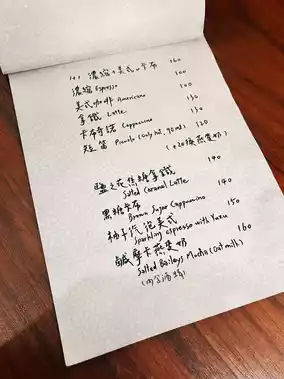 1+1 濃縮+美式or卡布 160
濃縮 Espresso 100
美式咖啡 Americano 100
拿鐵 Latte 130
卡布奇諾 Cappuccino 130
短笛 Piccolo (only hot, 90ml). 120
(+20換燕麥奶)
鹽之花焦糖拿鐵 140
Salted Caramel Latte
黑糖卡布 140
Brown Sugar Cappuccino
柚子汽泡美式 150
Sparkling espresso with Yuzu
鹹摩卡燕麥奶 160
Salted Baileys Mocha (Oat milk)
(內含酒精)